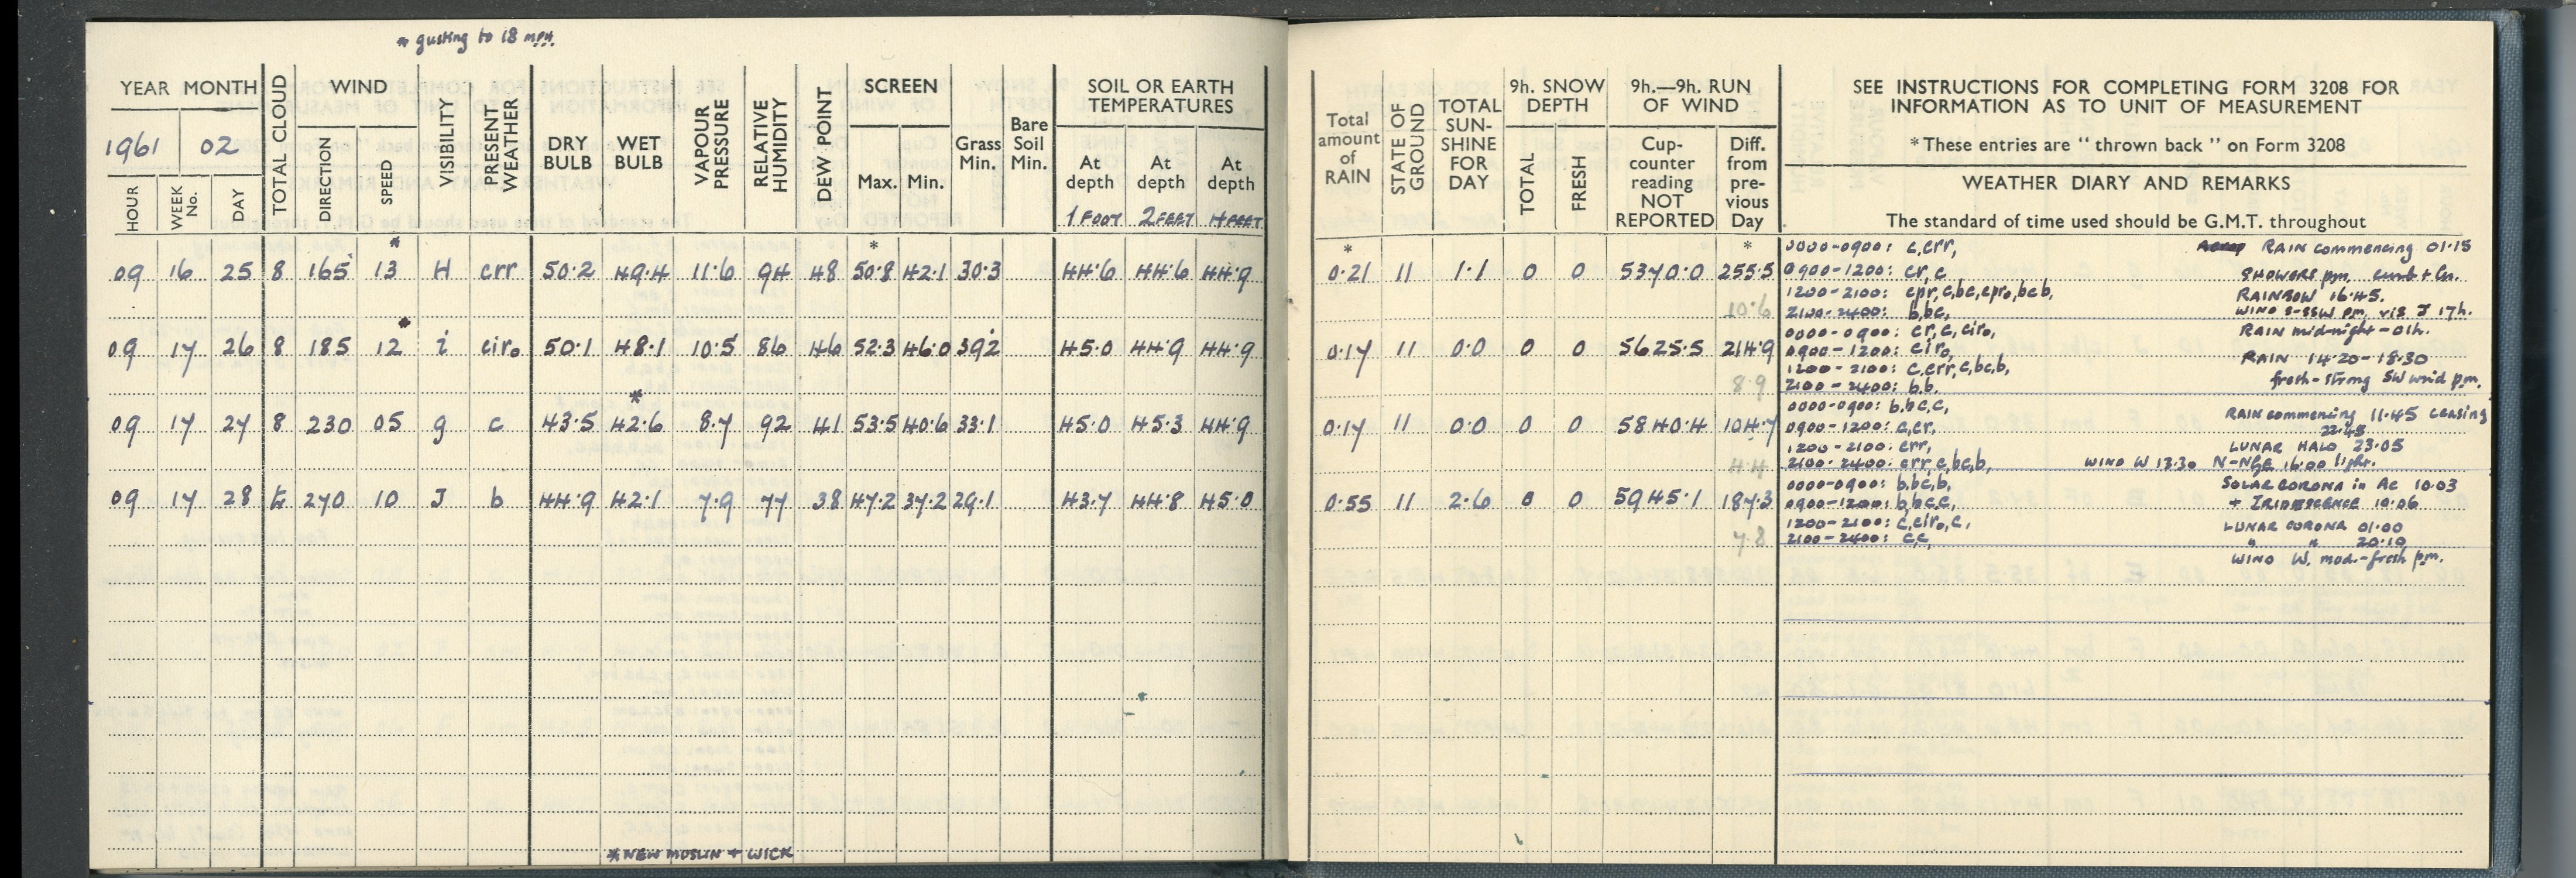 * gusting to 18 mph.
YEAR MONTH
1961 02
HOUR
WEEK No.
DAY
TOTAL CLOUD
WIND
DIRECTION
SPEED
VISIBILITY
PRESENT WEATHER
DRY BULB
WET BULB
VAPOUR PRESSURE
RELATIVE HUMIDITY
DEW POINT
SCREEN
Max. Min.
Grass Min.
Bare Soil Min.
SOIL OR EARTH
TEMPERATURES
At depth 1 FOOT
At depth 2 FEET
At depth 4 FEET
* *
09 16 25 8 165 13 H crr 50.2 49.4 11.6 94 48 50.8 42.1 30.3 44.6 44.6 44.9
*
09 17 26 8 185 12 i ciro 50.1 48.1 10.5 86 46 52.3 46.0 39.2 45.0 44.9 44.9
*
09 17 27 8 230 05 g c 43.5 42.6 8.7 92 41 53.5 40.6 33.1 45.0 45.3 44.9
09 17 28 270 10 J b 44.9 42.1 7.9 77 38 47.2 37.2 29.1 43.7 44.8 45.0
* NEW MUSLIN + WICK
Total amount of RAIN
STATE OF GROUND
TOTAL SUN-SHINE FOR DAY
9h. SNOW DEPTH
TOTAL
FRESH
9h.—9h. RUN OF WIND
Cup-counter reading NOT REPORTED
Diff. from pre-vious Day
SEE INSTRUCTIONS FOR COMPLETING FORM 3208 FOR
INFORMATION AS TO UNIT OF MEASUREMENT
* These entries are "thrown back" on Form 3208
WEATHER DIARY AND REMARKS
The standard of time used should be G.M.T. throughout
* *
0.21 11 1.1 0 0 5370.0 255.5
10.6
0000-0900: c,crr, RAIN commencing 01.15
0900-1200: cr,c SHOWERS pm. cumb + Cu.
1200-2100: cpr,c,bc,cpro,bcb, RAINBOW 16.45.
2100-2400: b,bc, WIND S-SSW pm, vis J 17h.
0.17 11 0.0 0 0 5625.5 214.9
8.9
0000-0900: cr,c,ciro, RAIN mid-night-01h.
0900-1200: ciro, RAIN 14.20-18.30
1200-2100: c,crr,c,bc,b, fresh-strong SW wind pm.
2100-2400: b,b.
0.17 11 0.0 0 0 5840.4 104.7
4.4
0000-0900: b,bc,c, RAIN commencing 11.45 ceasing
0900-1200: c,cr, 22.45
1200-2100: crr, LUNAR HALO 23.05
2100-2400: crr,c,bc,b, WIND W 13.30 N-NGE 16.00 light.
0.55 11 2.6 0 0 5945.1 187.3
7.8
0000-0900: b,bc,b, SOLAR CORONA in Ac 10.03
0900-1200: b,bc,c, + IRIDESCENCE 10.06
1200-2100: c,ciro,c, LUNAR CORONA 01.00
2100-2400: c,c, " " 20.10
WIND W. mod.-fresh pm.